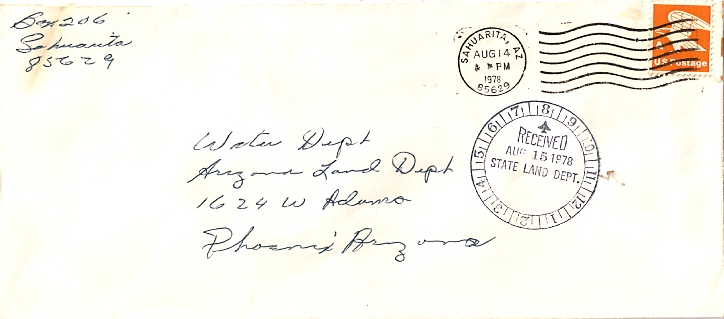 Box 206
Sahuarita
85629
SAHUARITA, AZ
AUG 14
PM
1978
85629
A
US Postage
7 8 9 10 11 12 1 2 3 4 5 6
RECEIVED
AUG 15 1978
STATE LAND DEPT.
Water Dept
Arizona Land Dept
1624 W Adams
Phoenix Arizona